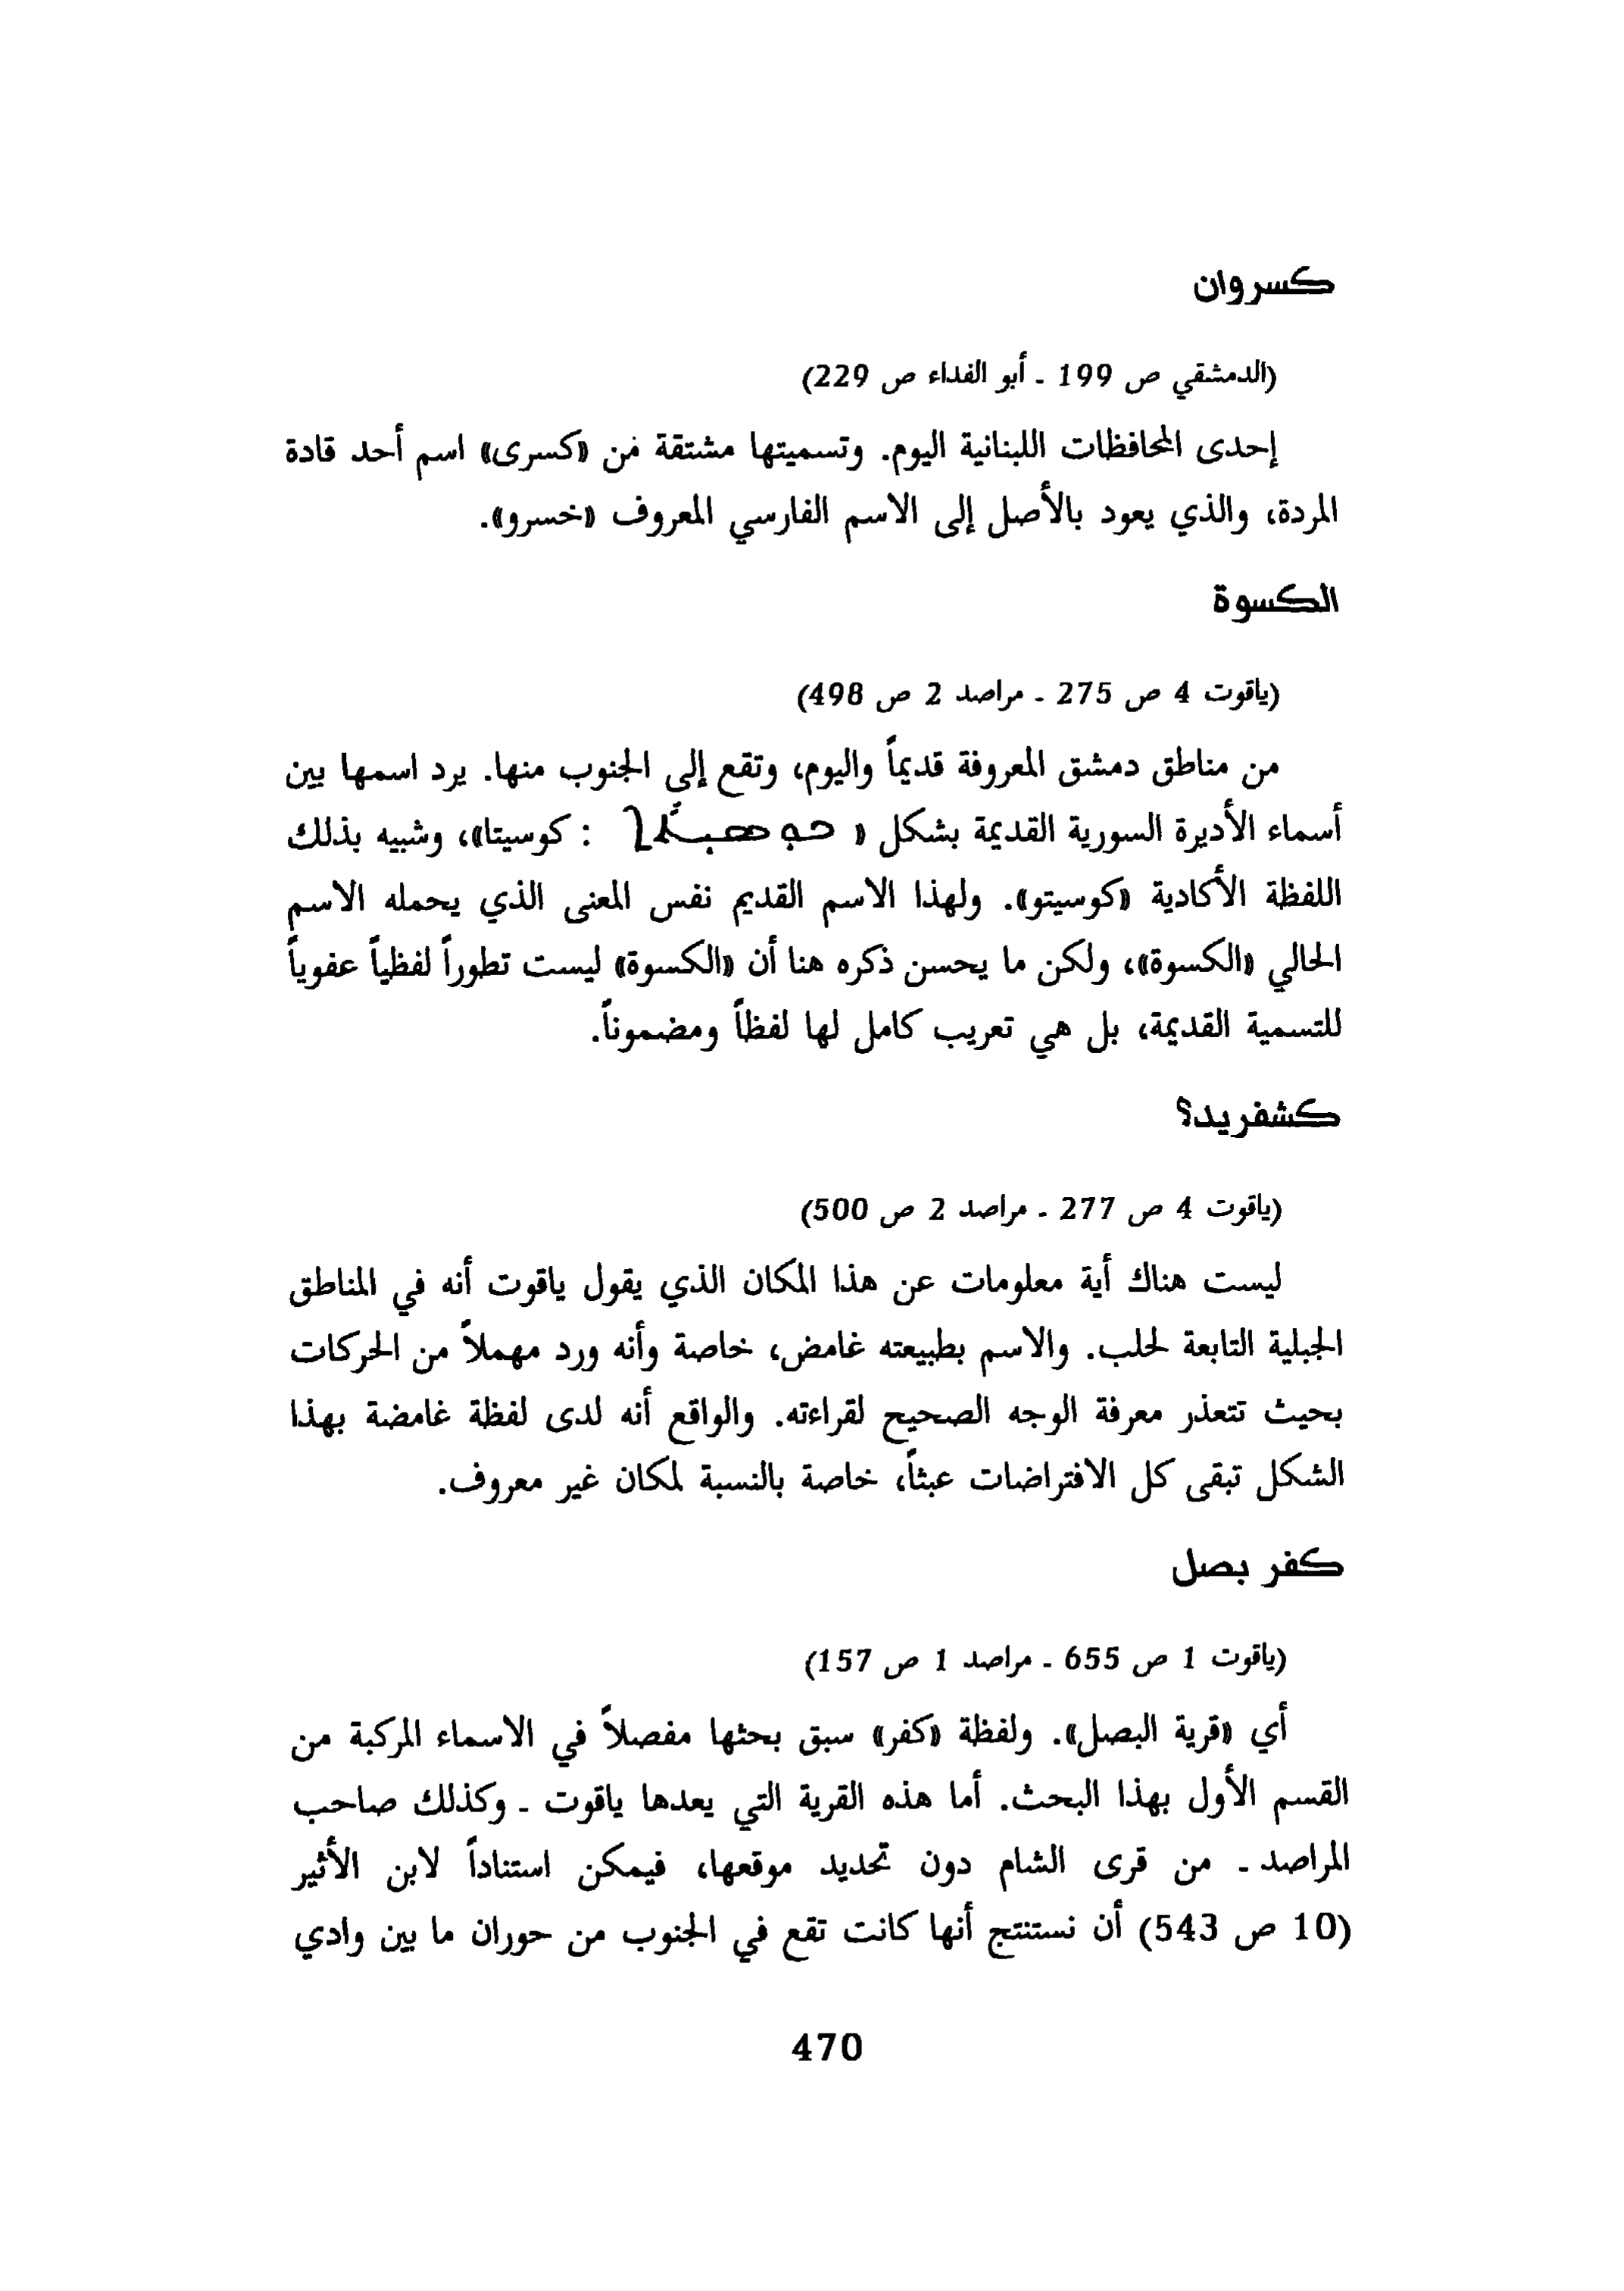 كسروان
(الدمشقي ص 199 ـ أبو الفداء ص 229)
إحدى المحافظات اللبنانية اليوم. وتسميتها مشتقة من «كسرى» اسم أحد قادة
المردة، والذي يعود بالأصل إلى الاسم الفارسي المعروف «خسرو».
الكسوة
(ياقوت 4 ص 275 ـ مراصد 2 ص 498)
من مناطق دمشق المعروفة قديماً واليوم، وتقع إلى الجنوب منها. يرد اسمها بين
أسماء الأديرة السورية القديمة بشكل « : كوسيتا»، وشبيه بذلك
اللفظة الأكادية «كوسيتو». ولهذا الاسم القديم نفس المعنى الذي يحمله الاسم
الحالي «الكسوة»، ولكن ما يحسن ذكره هنا أن «الكسوة» ليست تطوراً لفظياً عفوياً
للتسمية القديمة، بل هي تعريب كامل لها لفظاً ومضموناً.
كشفريد؟
(ياقوت 4 ص 277 ـ مراصد 2 ص 500)
ليست هناك أية معلومات عن هذا المكان الذي يقول ياقوت أنه في المناطق
الجبلية التابعة لحلب. والاسم بطبيعته غامض، خاصة وأنه ورد مهملاً من الحركات
بحيث تتعذر معرفة الوجه الصحيح لقراءته. والواقع أنه لدى لفظة غامضة بهذا
الشكل تبقى كل الافتراضات عبثاً، خاصة بالنسبة لمكان غير معروف.
كفر بصل
(ياقوت 1 ص 655 ـ مراصد 1 ص 157)
أي «قرية البصل». ولفظة «كفر» سبق بحثها مفصلاً في الاسماء المركبة من
القسم الأول بهذا البحث. أما هذه القرية التي يعدها ياقوت ـ وكذلك صاحب
المراصد ـ من قرى الشام دون تحديد موقعها، فيمكن استناداً لابن الأثير
(10 ص 543) أن نستنتج أنها كانت تقع في الجنوب من حوران ما بين وادي
470